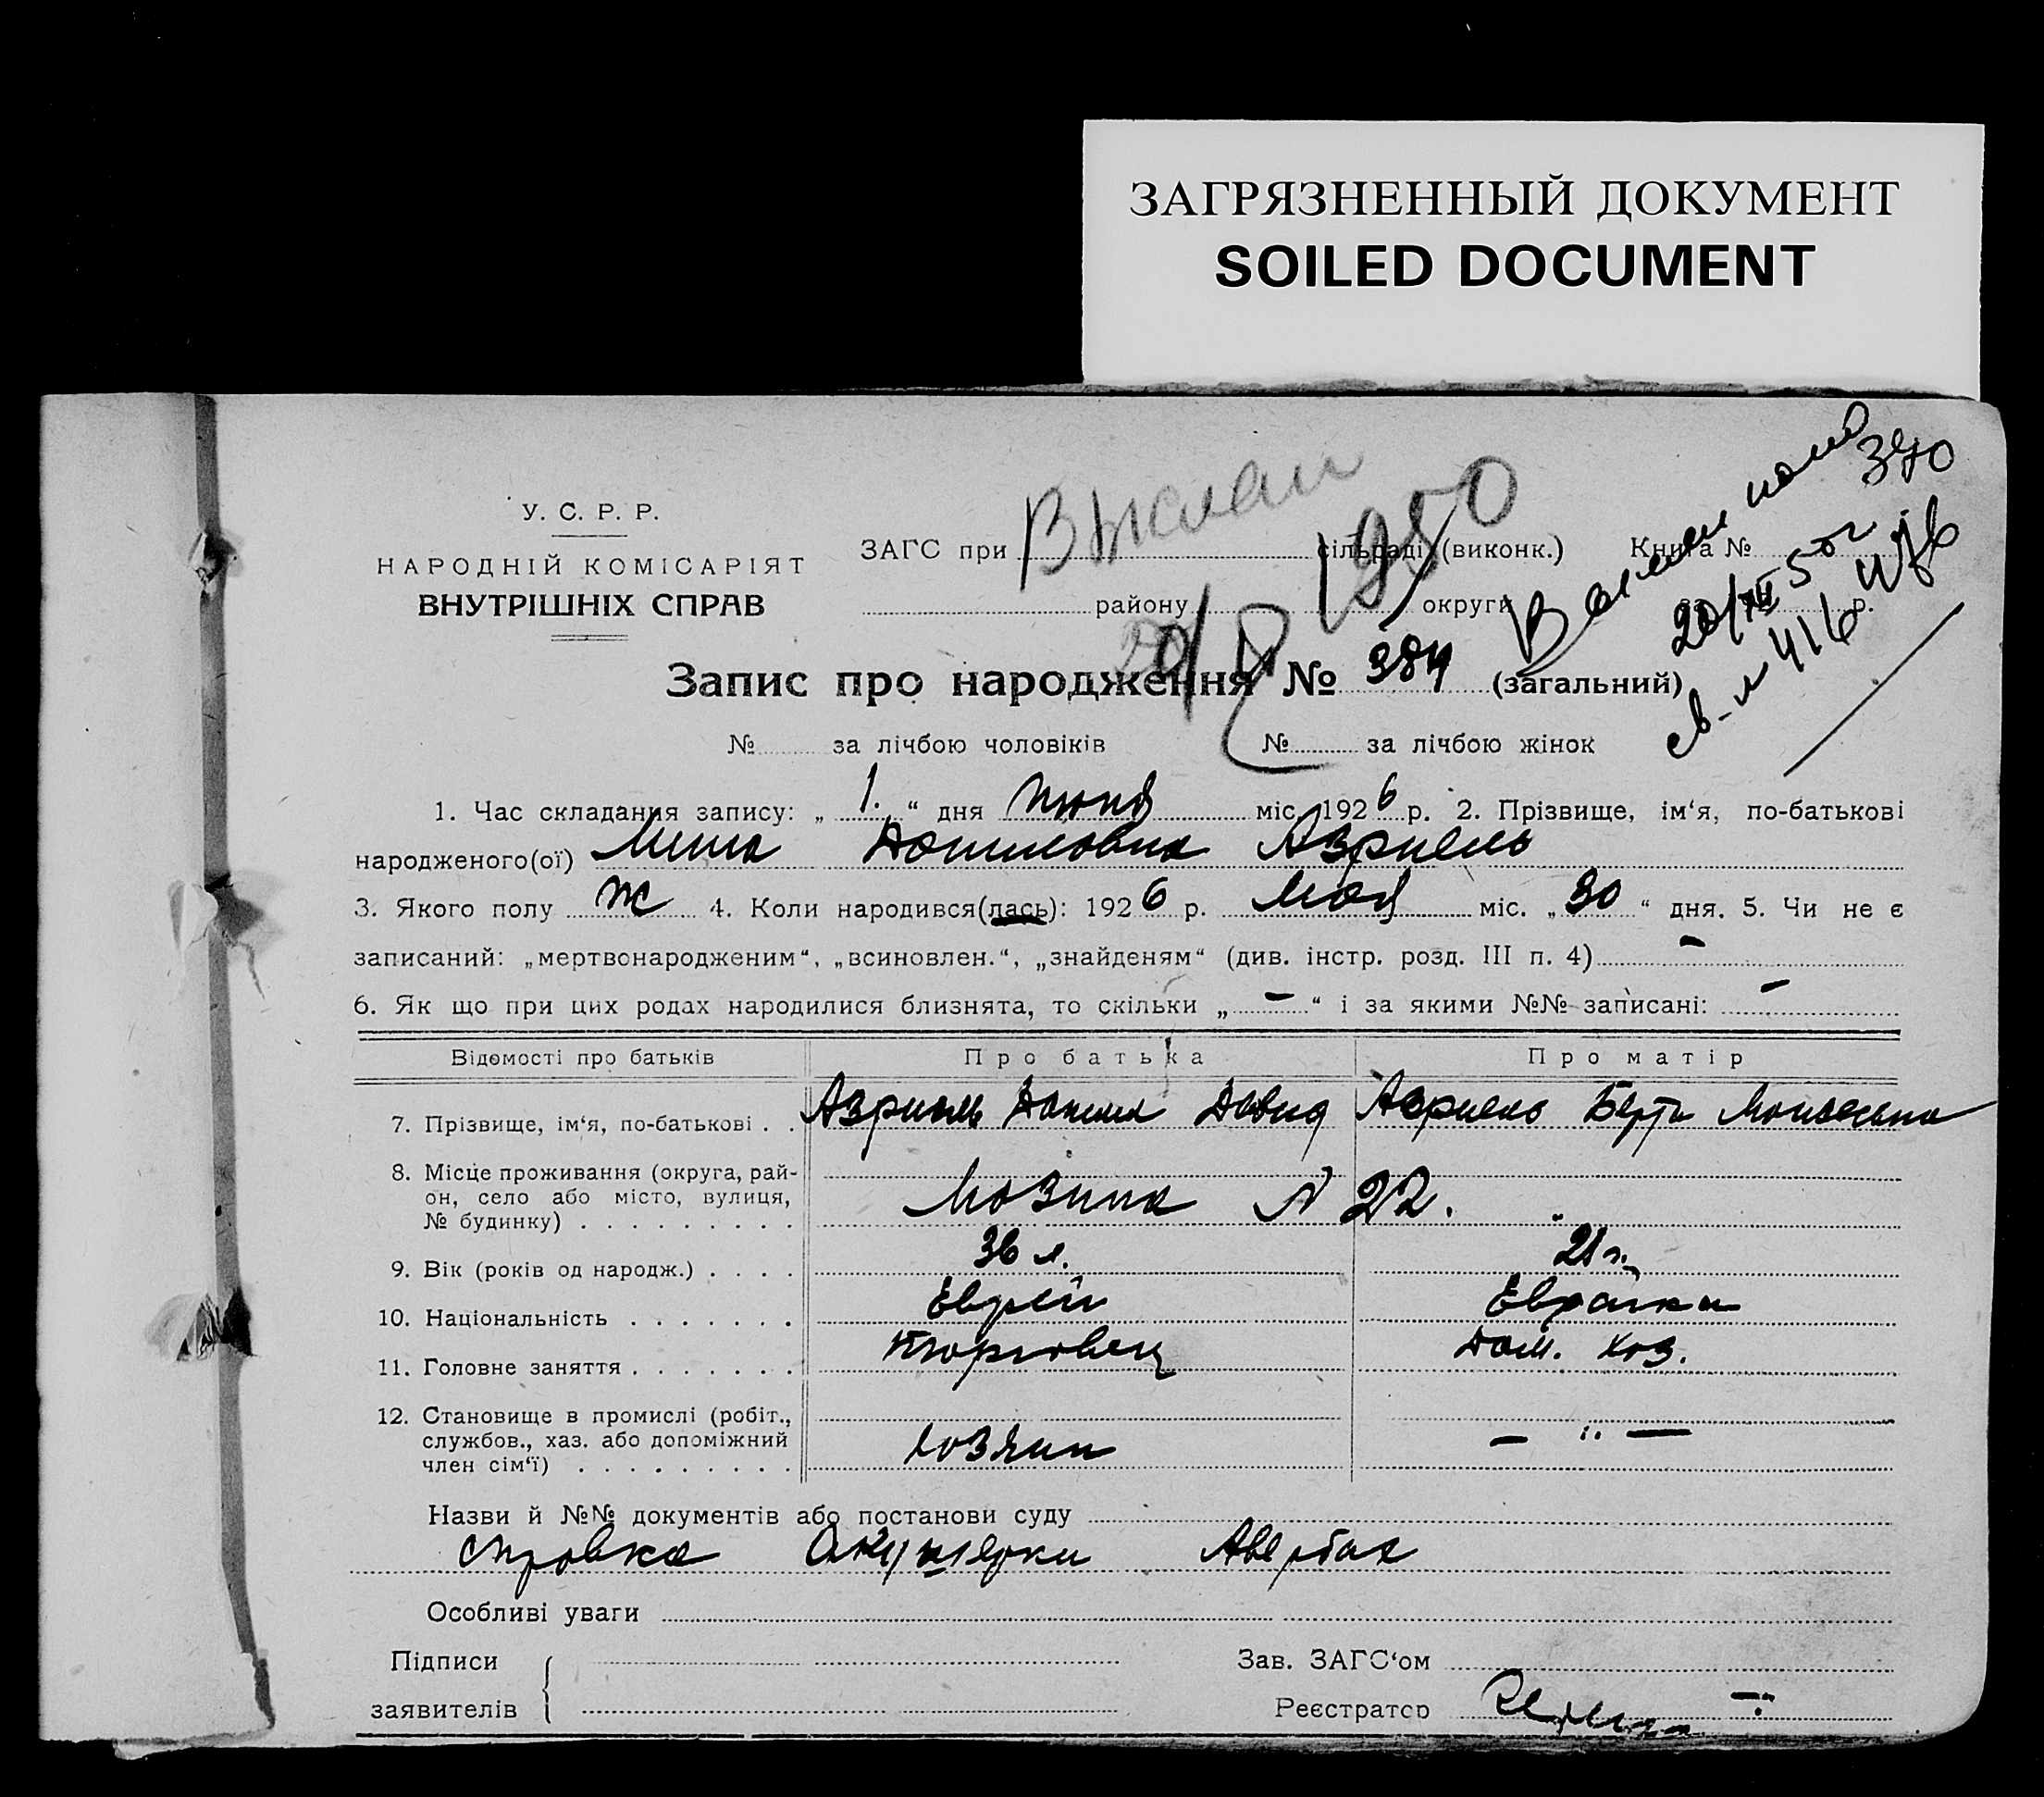 ЗАГРЯЗНЕННЫЙ ДОКУМЕНТ
SOILED DOCUMENT
У. С. Р. Р.
НАРОДНІЙ КОМІСАРІЯТ
ВНУТРІШНІХ СПРАВ
ЗАГС при сільраді (виконк.) Книга №
району округи за р.
Выслан
20/8 1950
20/XII 50 г
св-л 416
Запис про народження № 384 (загальний)
№ за лічбою чоловіків № за лічбою жінок
1. Час складання запису: „ 1. “ дня Июня міс. 1926 р. 2. Прізвище, ім‘я, по-батькові
народженого(ої) Даниловна Азриель
3. Якого полу ж 4. Коли народився(лась): 1926 р. Мая міс. „ 30 “ дня. 5. Чи не є
записаний: „мертвонародженим“, „всиновлен.“, „знайденям“ (див. інстр. розд. III п. 4) –
6. Як що при цих родах народилися близнята, то скільки „ – “ і за якими №№ записані: –
Відомості про батьків Про батька Про матір
7. Прізвище, ім‘я, по-батькові . . Азриель Данил Давид Азриель Берта Моисеевна
8. Місце проживання (округа, рай-
он, село або місто, вулиця,
№ будинку) . . . . . . . . . № 22. „
9. Вік (років од народж.) . . . . 36 л. 21 г.
10. Національність . . . . . . . Еврей Еврейка
11. Головне заняття . . . . . . . торговец дом. хоз.
12. Становище в промислі (робіт.,
службов., хаз. або допоміжний
член сім‘ї) . . . . . . . . . хозяин – „ –
Назви й №№ документів або постанови суду
справка Акушерки Авербах
Особливі уваги
Підписи Зав. ЗАГС‘ом
заявителів Реєстратор